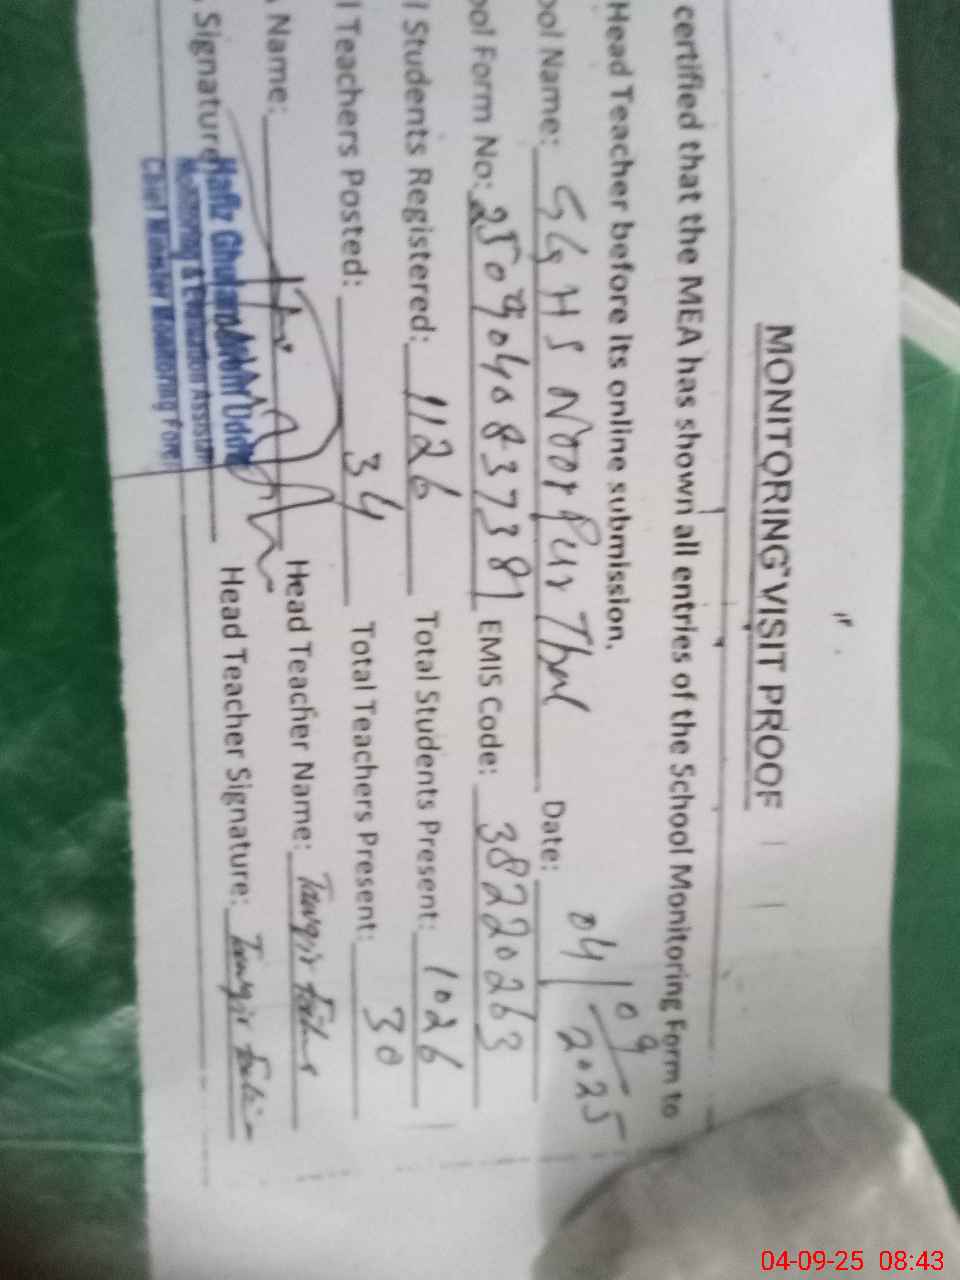 MONITORING VISIT PROOF
certified that the MEA has shown all entries of the School Monitoring Form to
Head Teacher before its online submission.
ool Name: GGHS Noorpur Thal Date: 04/09/2025
ool Form No: EMIS Code: 38220263
l Students Registered: 1126 Total Students Present: 1026
l Teachers Posted: 34 Total Teachers Present: 30
Name: Head Teacher Name:
Signature Head Teacher Signature:
Hafiz Ghulam
Monitoring & Evaluation Assistant
Chief Minister Monitoring Force
04-09-25 08:43